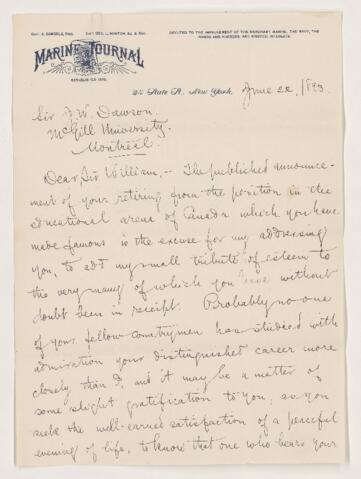 MARINE JOURNAL
ESTABLISHED 1878
DEVOTED TO THE IMPROVEMENT OF THE MERCHANT MARINE, THE NAVY,
24 State St., New York, June 22, 1893.
Sir J. W. Dawson,
McGill University,
Montreal
Dear Sir William, — The published announce-
ment of your retiring from the position in the
educational arena of Canada which you have
made famous is the excuse for my addressing
you, to add my small tribute of esteem to
the very many of which you have without
doubt been in receipt. Probably no one
of your fellow countrymen has studied with
admiration your distinguished career more
closely than I, and it may be a matter of
some slight gratification to you, as you
seek the well-earned satisfaction of a peaceful
evening of life, to know that one who bears your